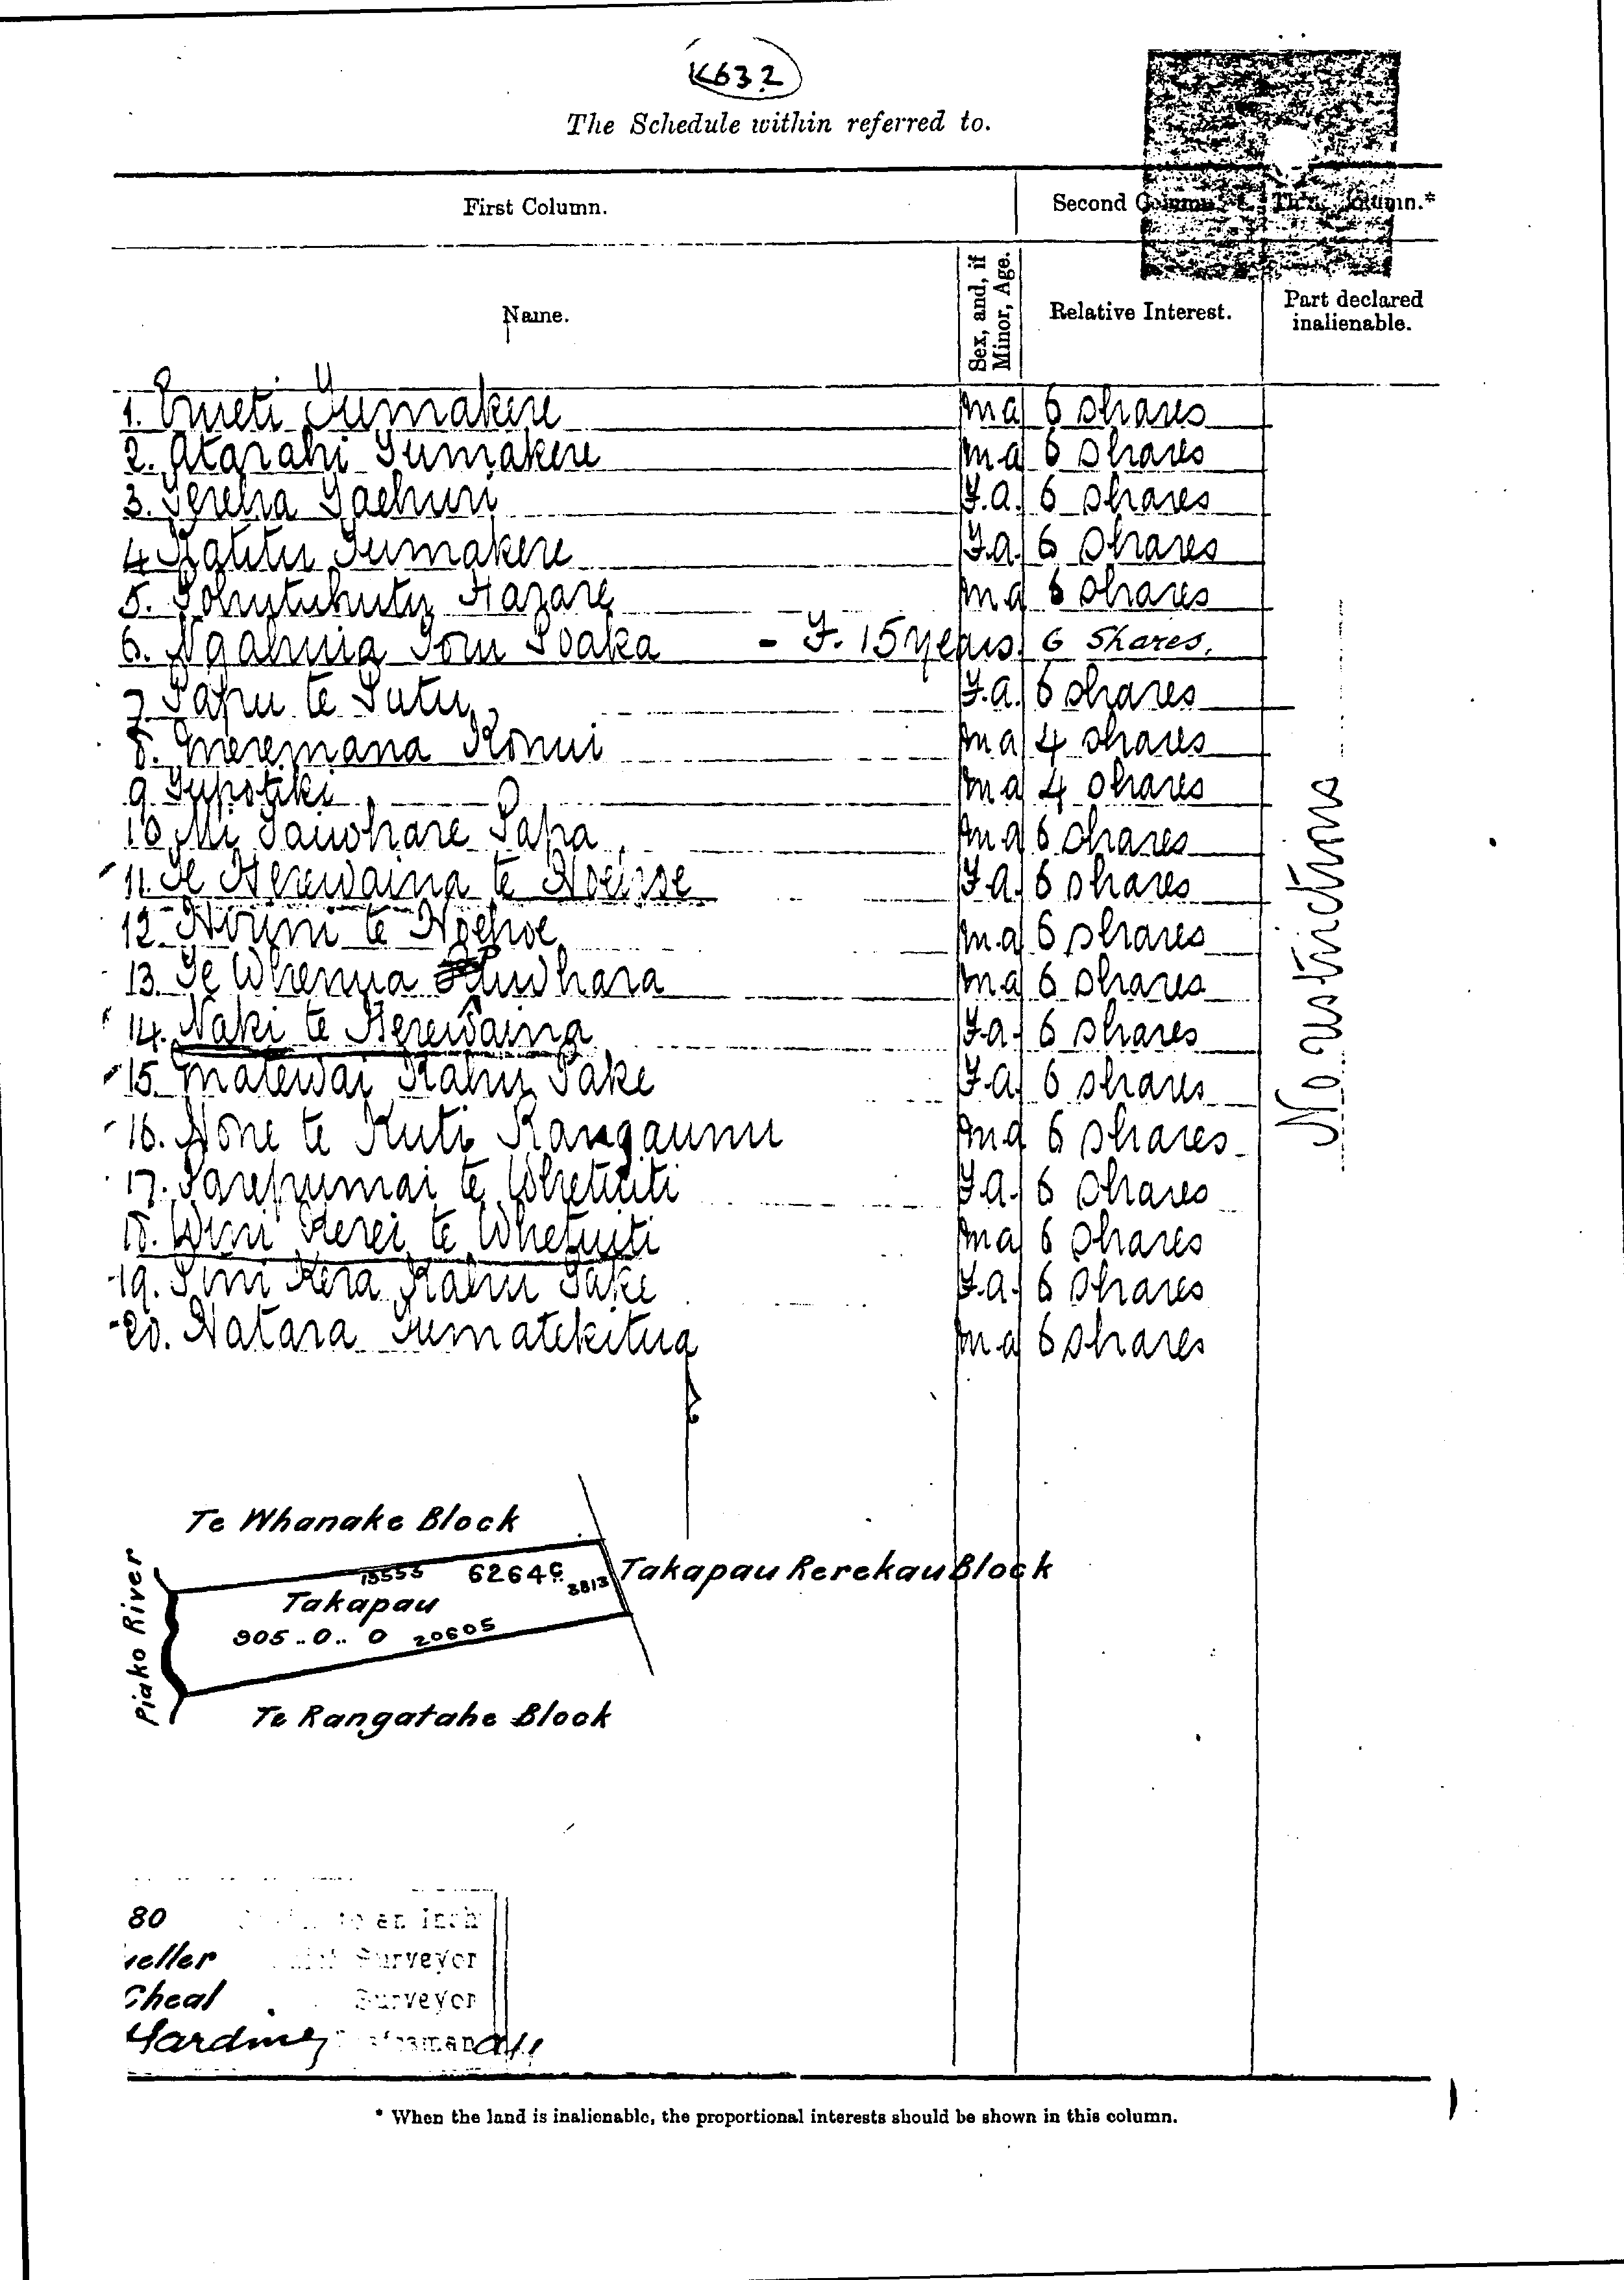 K632
The Schedule within referred to.
First Column. Second Column. Third Column.*
Name. Sex, and, if Minor, Age. Relative Interest. Part declared inalienable.
1. Emeti Tumakere m a 6 shares
2. Atarahi Tumakere m a 6 shares
3. Tereha Taehuri F.a. 6 shares
4 Katutu Tumakere F.a. 6 shares
5. Pohutuhutu Hazare m a 6 shares
6. Ngahuia Toru Poaka - F. 15 years 6 Shares.
7. Papu te Putu F.a. 6 shares
8. Meremana Konui m a 4 shares
9. Tupotiki m a 4 shares
10. Mi Tauwhare Papa m a 6 shares
11. Te Herewaina te Hoehoe F.a. 6 shares
12. Hirini te Hoehoe m.a 6 shares
13. Te Whenua Tauwhara m a 6 shares
14. Naki te Herewaina F.a. 6 shares
15. Matewai Kahu Take F.a. 6 shares
16. Hone te Kuti Rangaunu m a 6 shares
17. Parepumai te Whetuiti F.a. 6 shares
18. Wini Kerei te Whetuiti m a 6 shares
19. Pini Kera Kahu Take F.a. 6 shares
20. Natara Tumatekitua m a 6 shares
No restrictions
Te Whanake Block
15553 6264C 3813 Takapau Rerekau Block
Takapau
905..0..0 20605
Piako River
Te Rangatahe Block
80 to an Inch
eller Surveyor
Cheal Surveyor
Harding
* When the land is inalienable, the proportional interests should be shown in this column.